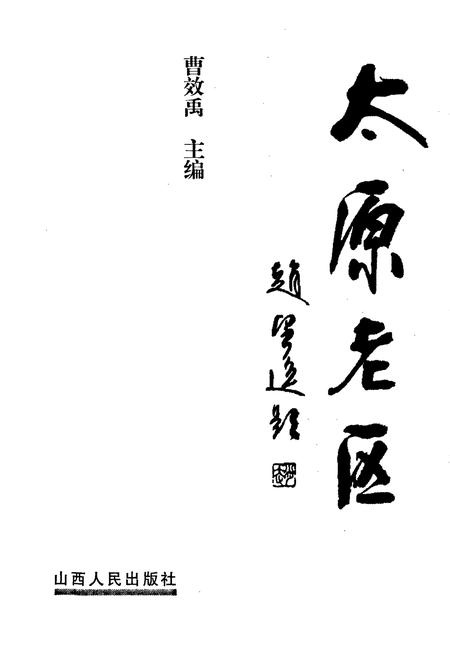 太原老区
赵望进题
曹效禹 主编
山西人民出版社